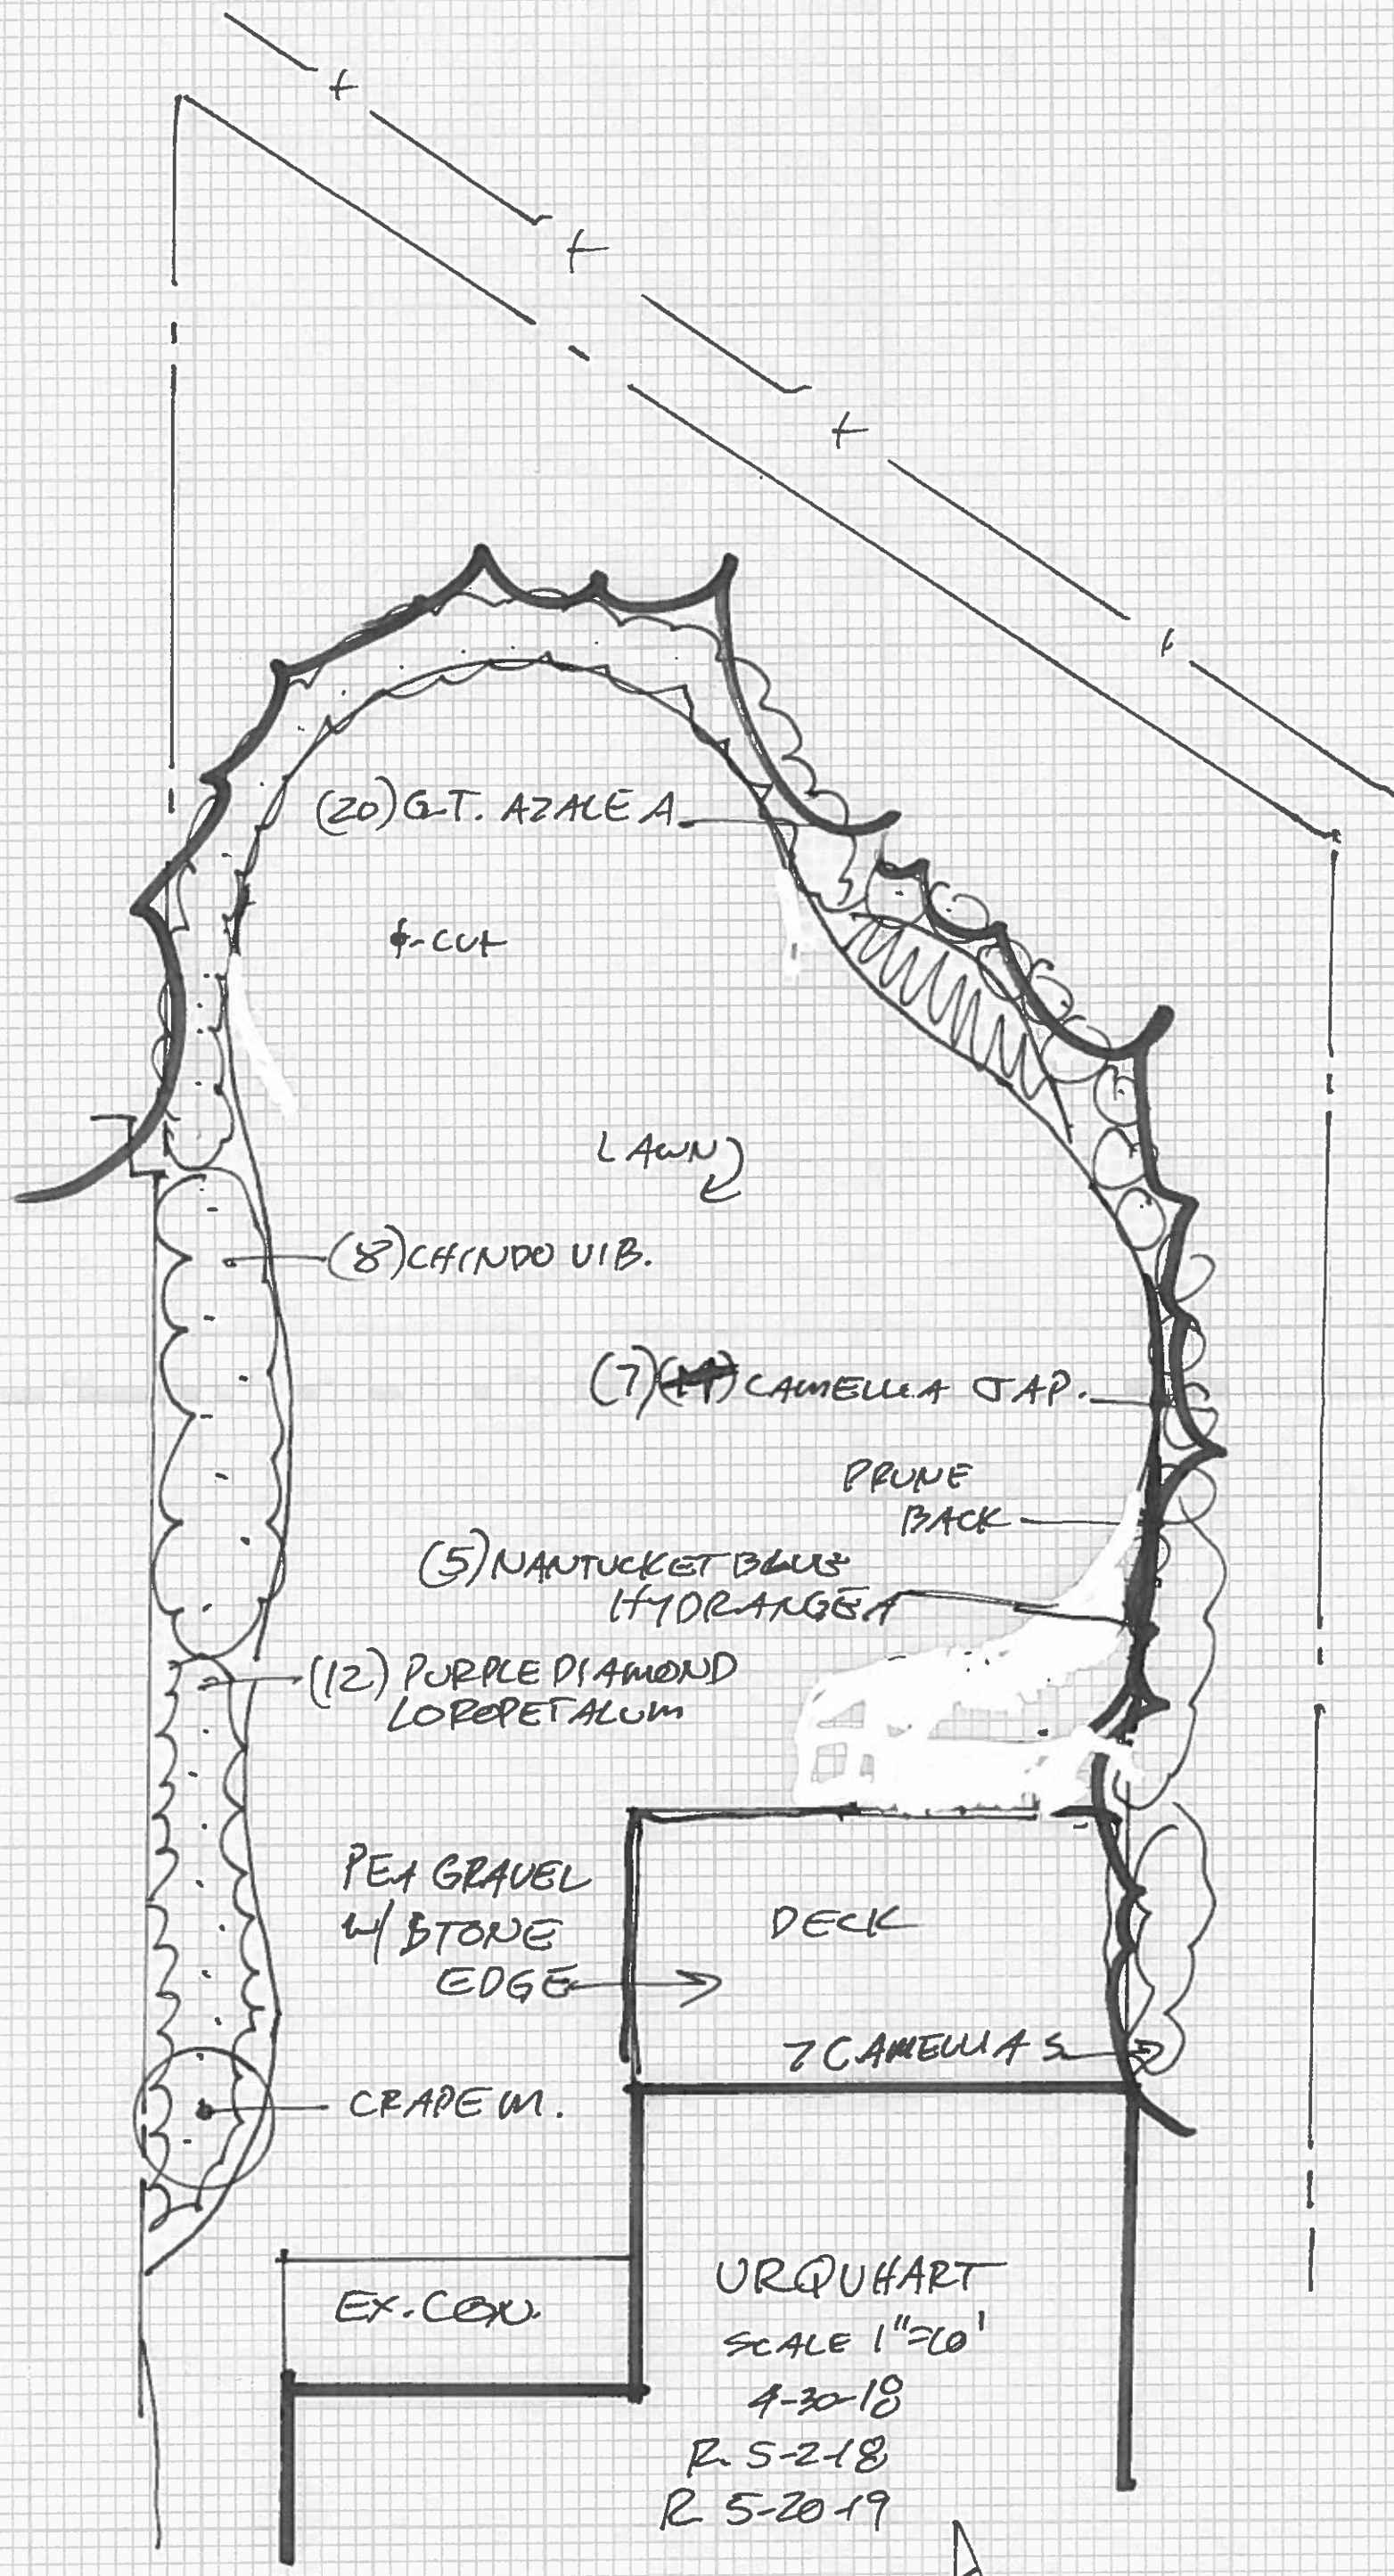 (20) G.T. AZALEA
-CUT
LAWN
(8) CHINDO VIB.
(7) CAMELLIA JAP.
PRUNE
BACK
(5) NANTUCKET BLUE
HYDRANGEA
(12) PURPLE DIAMOND
LOROPETALUM
PEA GRAVEL
W/ BSTONE
EDGE
DECK
7 CAMELLIAS
CRAPE M.
EX. CON.
URQUHART
SCALE 1"=10'
4-30-18
R. 5-2-18
R 5-20-19